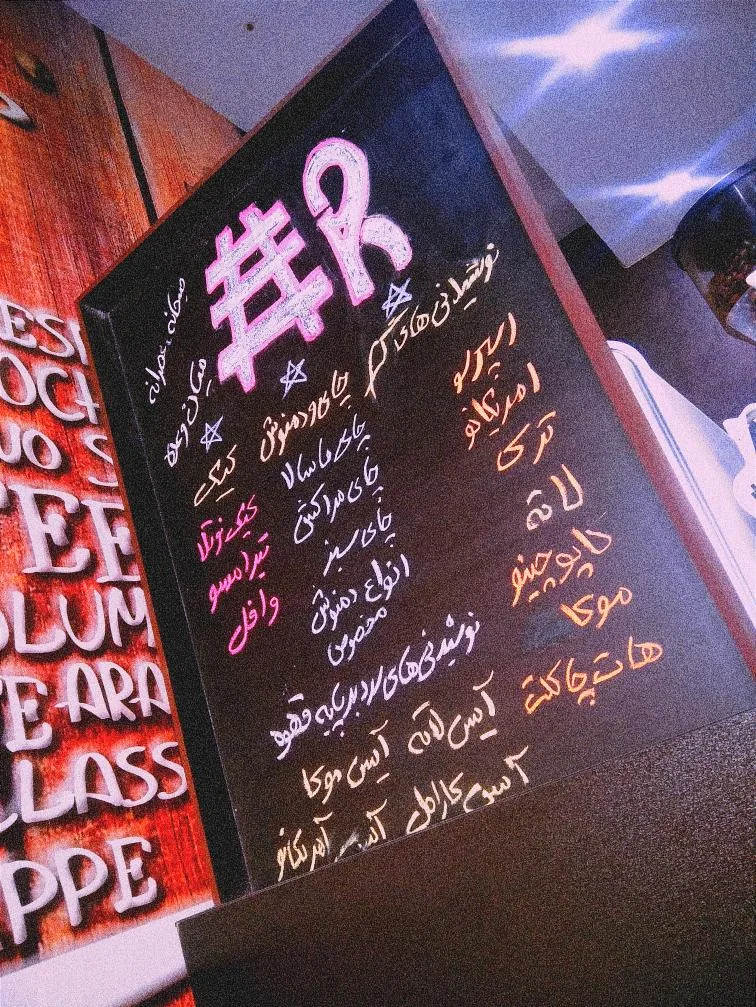 #R
صبحانه، عصرانه
میان وعده
نوشیدنی های گرم
اسپرسو
امریکانو
ترک
لاته
کاپوچینو
موکا
هات چاکلت
چای و دمنوش
چای ماسالا
چای مراکشی
چای سبز
انواع دمنوش
مخصوص
کیک
کیک نوتلا
تیرامیسو
وافل
نوشیدنی های سرد بر پایه قهوه
آیس لاته آیس موکا
آیس کارامل آیس آمریکانو
OCH
NO S
TEE
OLUM
ARA
LASS
APPE